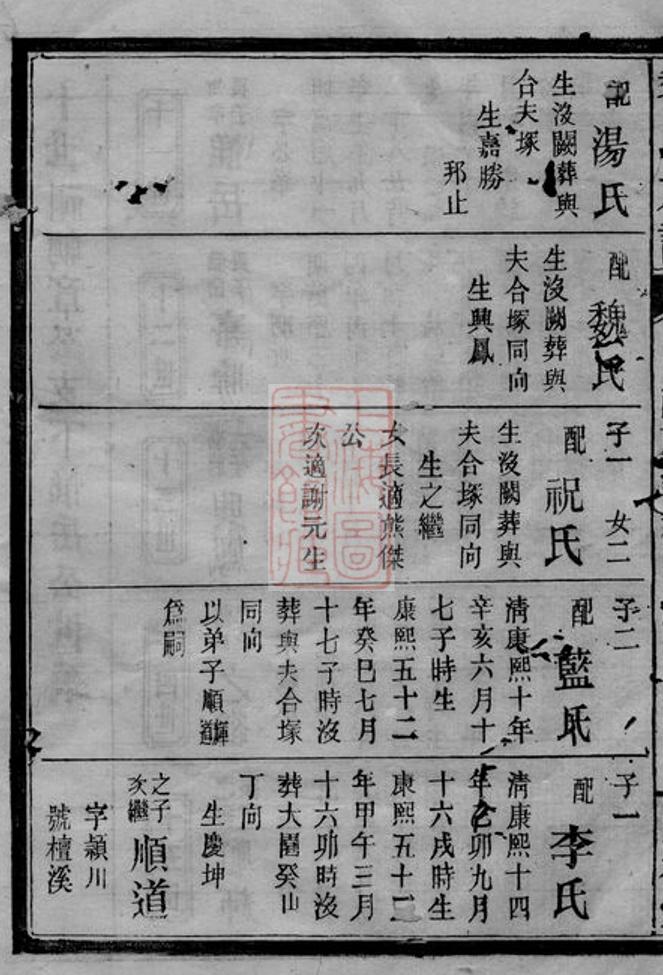 配湯氏
生沒闕葬與
合夫塚
生嘉勝
邦止
配魏氏
生沒闕葬與
夫合塚同向
生興鳳
子一 女二
配祝氏
生沒闕葬與
夫合塚同向
生之繼
女長適熊傑
公
次適謝元生
子二
配藍氏
清康熙十年
辛亥六月十
七子時生
康熙五十二
年癸巳七月
十七子時沒
葬與夫合塚
同向
以弟子順輝道
為嗣
子一
配李氏
清康熙十四
年乙卯九月
十六戌時生
康熙五十三
年甲午三月
十六卯時沒
葬大圖癸山
丁向
生慶坤
之子
次繼
順道
字潁川
號檀溪